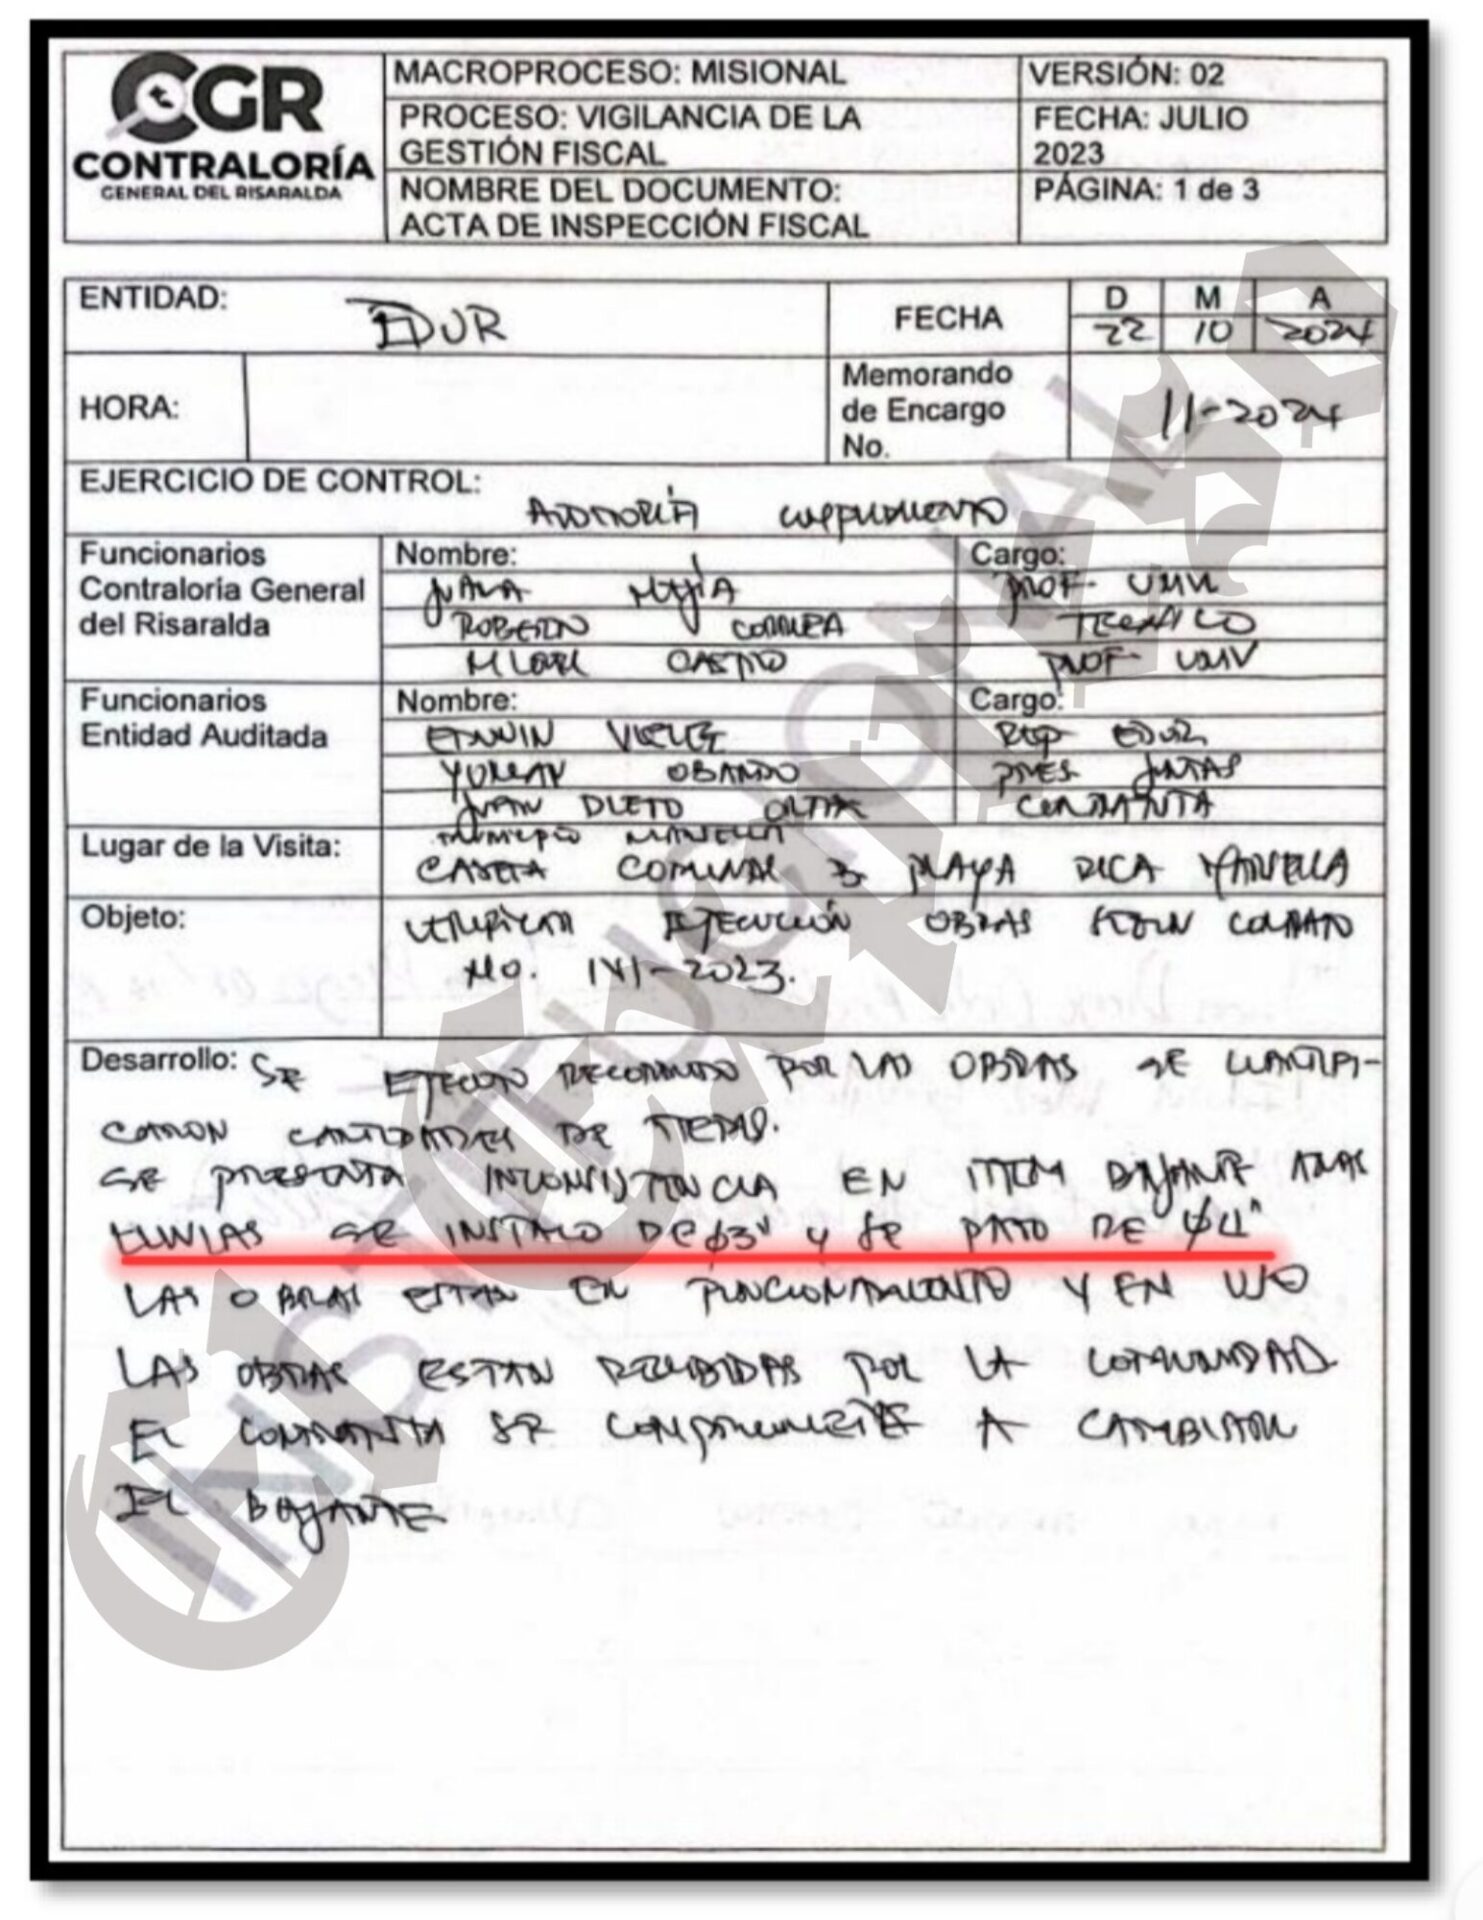 CGR
CONTRALORÍA
GENERAL DEL RISARALDA
MACROPROCESO: MISIONAL
VERSIÓN: 02
PROCESO: VIGILANCIA DE LA
GESTIÓN FISCAL
FECHA: JULIO
2023
NOMBRE DEL DOCUMENTO:
ACTA DE INSPECCIÓN FISCAL
PÁGINA: 1 de 3
ENTIDAD:
EDUR
FECHA
D M A
22 10 2024
HORA:
Memorando
de Encargo
No.
11-2024
EJERCICIO DE CONTROL:
AUDITORÍA CUMPLIMIENTO
Funcionarios
Contraloría General
del Risaralda
Nombre:
Cargo:
MEJÍA PROF- UNIV
ROBERTO CORREA TECNICO
CASTRO PROF- UNIV
Funcionarios
Entidad Auditada
Nombre:
Cargo:
EDWIN REP EDUR
OBANDO PRES. JUNTAS
JUAN CONTRATISTA
Lugar de la Visita:
MUNICIPIO MARSELLA
CASETA COMUNAL PLAYA RICA MARSELLA
Objeto:
VERIFICAR EJECUCIÓN OBRAS SEGUN CONTRATO
No. 141-2023.
Desarrollo:
SE EJECUTO RECORRIDO POR LAS OBRAS SE CUANTIFI-
CARON CANTIDADES DE ITEMS.
SE PRESENTA INCONSISTENCIA EN ITEM BAJANTE AGUAS
LLUVIAS SE INSTALO DE ø3" Y SE PAGO DE ø4"
LAS OBRAS ESTAN EN FUNCIONAMIENTO Y EN USO
LAS OBRAS ESTAN RECIBIDAS POR LA COMUNIDAD
EL CONTRATISTA SE COMPROMETE A CAMBIAR
EL BAJANTE
INSTITUCIONAL